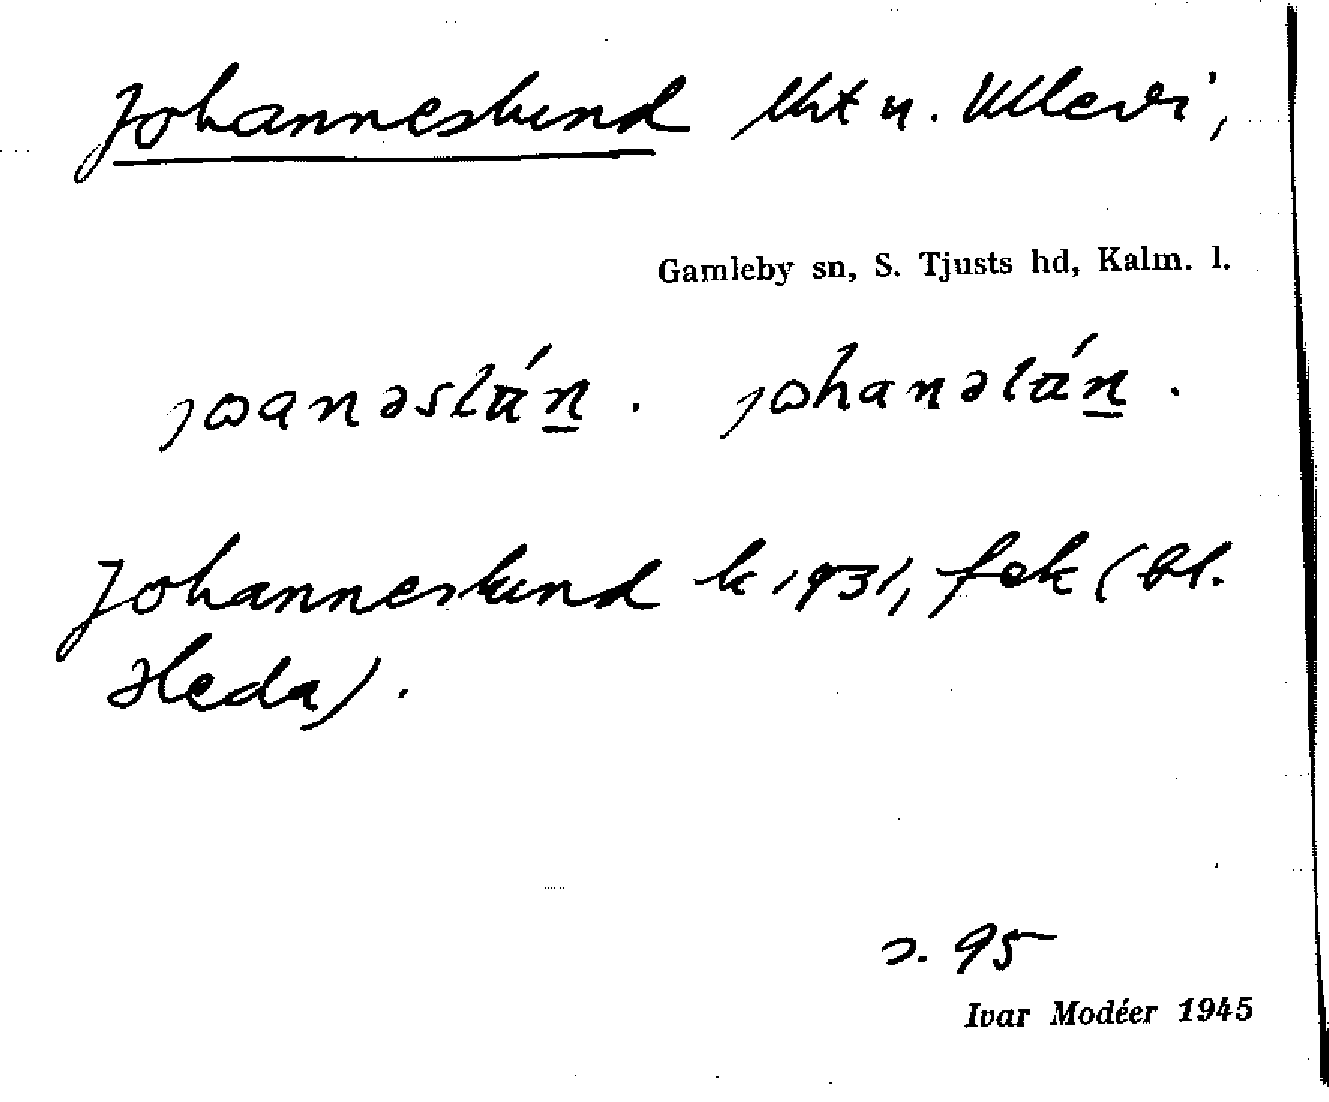 Johanneslund lht u. Ullevi,
Gamleby sn, S. Tjusts hd, Kalm. l.
Johanneslund k 1931, fek (bl.
Heda).
s. 95
Ivar Modéer 1945